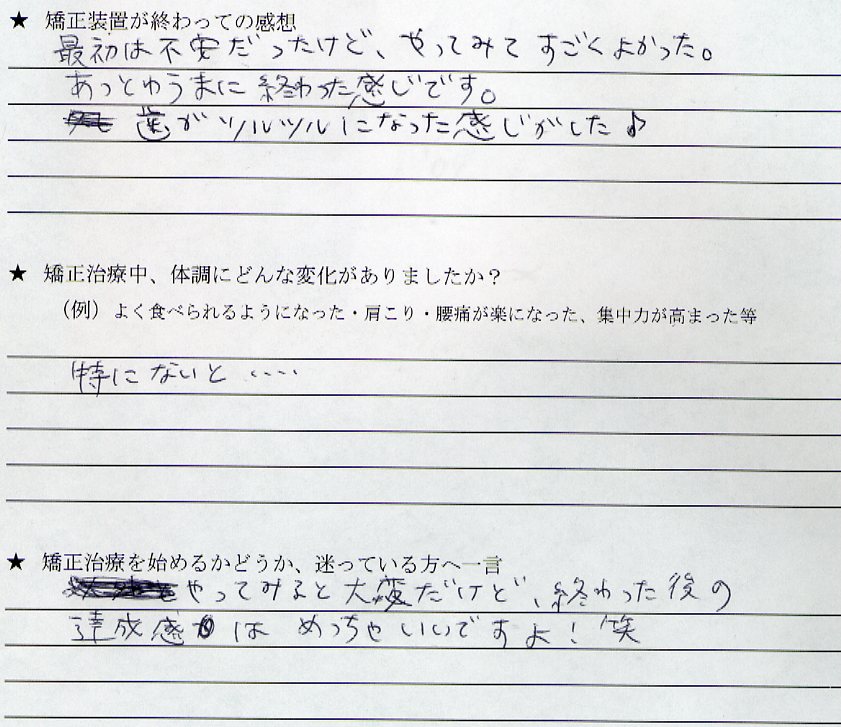 ★ 矯正装置が終わっての感想
最初は不安だったけど、やってみてすごくよかった。
あっとゆうまに終わった感じです。
歯がツルツルになった感じがした♪
★ 矯正治療中、体調にどんな変化がありましたか？
（例）よく食べられるようになった・肩こり・腰痛が楽になった、集中力が高まった等
特にないと‥‥
★ 矯正治療を始めるかどうか、迷っている方へ一言
やってみると大変だけど、終わった後の
達成感はめっちゃいいですよ！笑